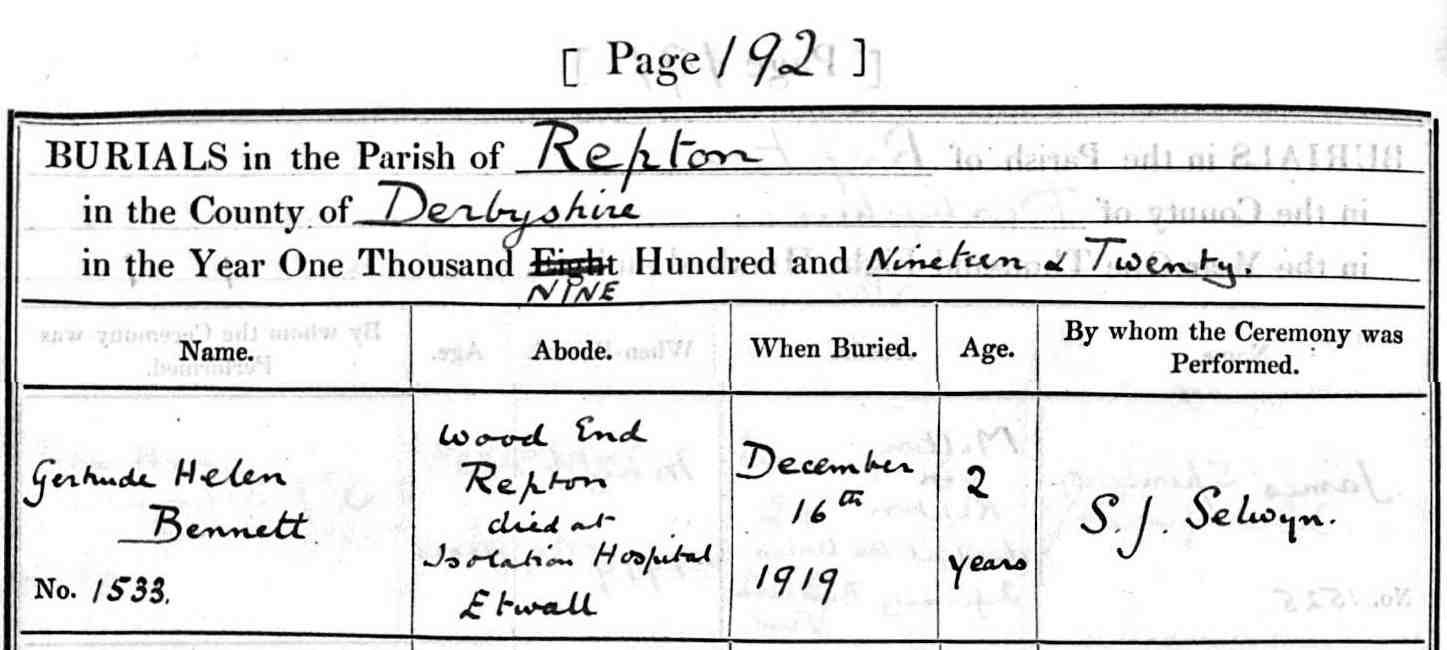 [ Page 192 ]
BURIALS in the Parish of Repton
in the County of Derbyshire
in the Year One Thousand Eight Hundred and Nineteen & Twenty.
NINE
Name.
Abode.
When Buried.
Age.
By whom the Ceremony was
Performed.
Gertrude Helen
Bennett
No. 1533.
Wood End
Repton
died at
Isolation Hospital
Etwall
December
16th
1919
2
years
S. J. Selwyn.